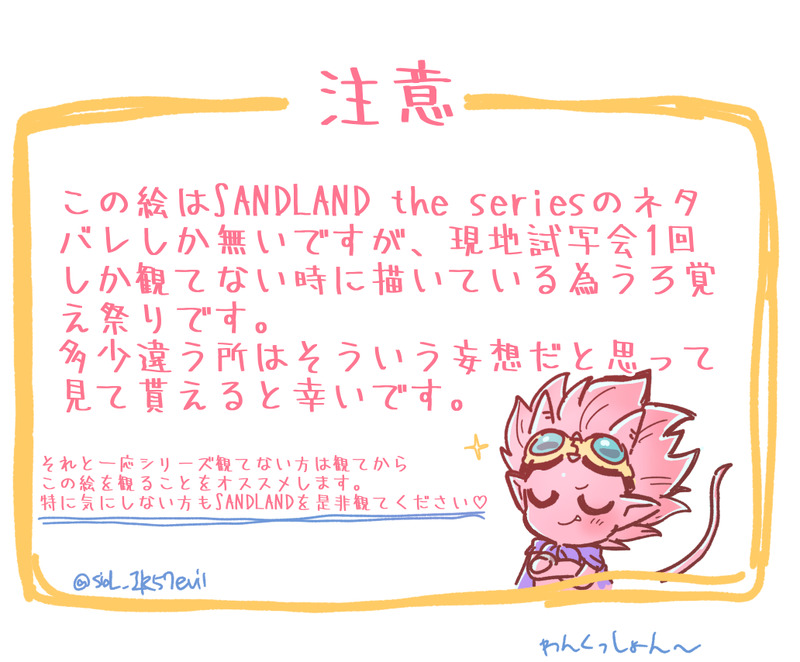 注意
この絵はSANDLAND the seriesのネタ
バレしか無いですが、現地試写会1回
しか観てない時に描いている為うろ覚
え祭りです。
多少違う所はそういう妄想だと思って
見て貰えると幸いです。
それと一応シリーズ観てない方は観てから
この絵を観ることをオススメします。
特に気にしない方もSANDLANDを是非観てください♡
わんくっしょん〜